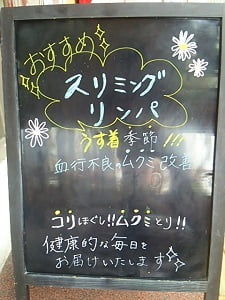 おすすめ
スリミング
リンパ
うす着季節!!!
血行不良のムクミ改善
コリほぐし!!ムクミとり!!
健康的な毎日を
お届けいたします